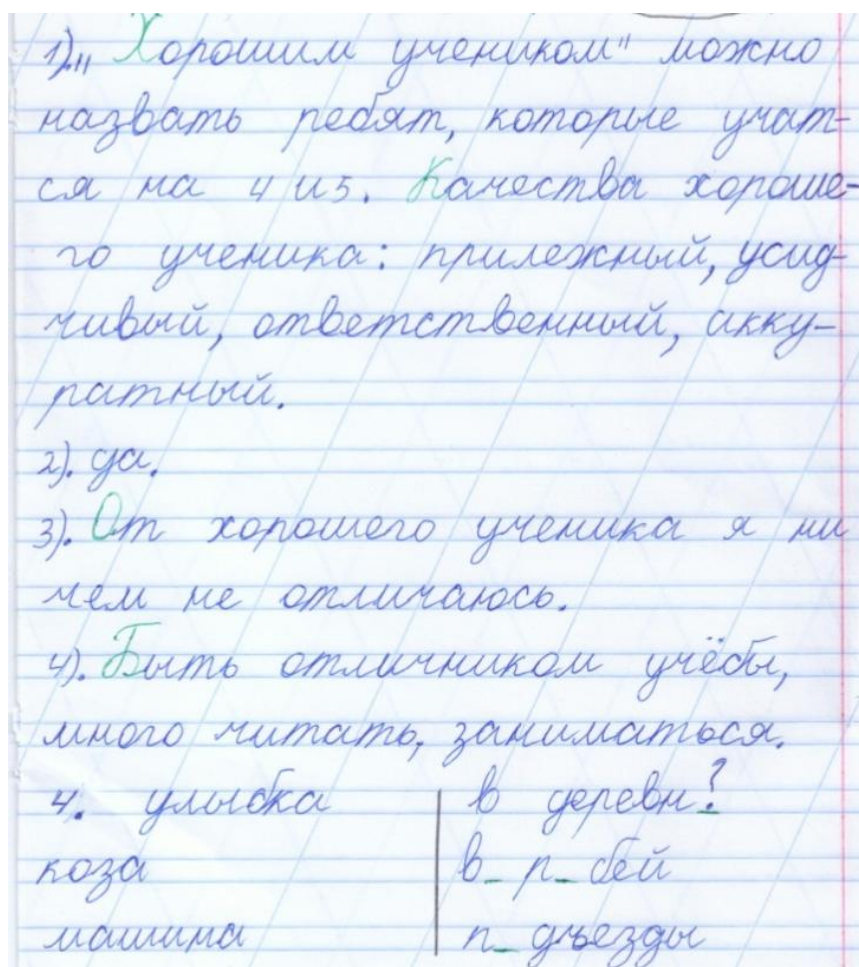 1).„Хорошим учеником" можно
назвать ребят, которые учат-
ся на 4 и 5. Качества хороше-
го ученика: прилежный, усид-
чивый, ответственный, акку-
ратный.
2). да.
3). От хорошего ученика я ни
чем не отличаюсь.
4). Быть отличником учёбы,
много читать, заниматься.
4. улыбка в деревн?
коза в_ р_ бей
машина п_ дъезды